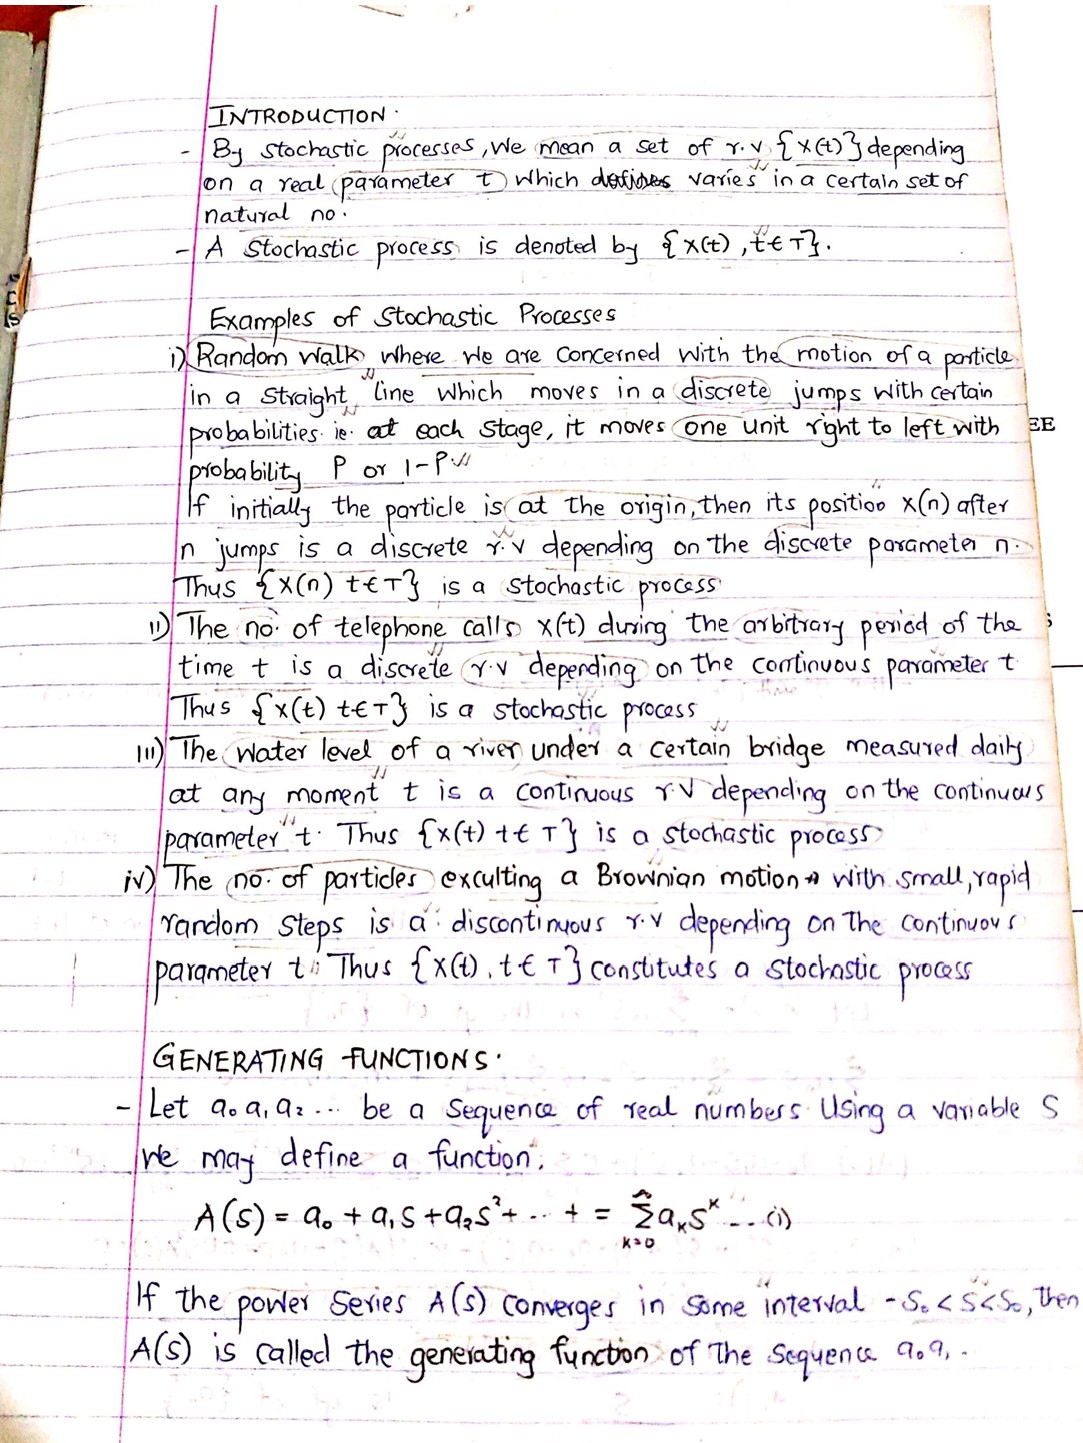 INTRODUCTION.
- By stochastic processes, we mean a set of r.v {X(t)} depending
on a real parameter t which varies in a certain set of
natural no.
- A stochastic process is denoted by {X(t), t∈T}.
Examples of Stochastic Processes
i) Random Walk where we are concerned with the motion of a particle
in a straight line which moves in a discrete jumps with certain
probabilities ie. at each stage, it moves one unit right to left with
EE
probability P or 1-P
If initially the particle is at the origin, then its position X(n) after
n jumps is a discrete r.v depending on the discrete parameter n.
Thus {X(n) t∈T} is a stochastic process
ii) The no. of telephone calls X(t) during the arbitrary period of the
time t is a discrete r.v depending on the continuous parameter t
Thus {X(t) t∈T} is a stochastic process
iii) The water level of a river under a certain bridge measured daily
at any moment t is a continuous r.v depending on the continuous
parameter t. Thus {X(t) t∈T} is a stochastic process
iv) The no. of particles exculting a Brownian motion with small, rapid
random steps is a discontinuous r.v depending on the continuous
parameter t. Thus {X(t), t∈T} constitutes a stochastic process
GENERATING FUNCTIONS.
- Let a₀ a₁ a₂ ... be a sequence of real numbers. Using a variable S
we may define a function.
A(S) = a₀ + a₁S + a₂S² + ... + = Σ aₖSᵏ ... (i)
k=0
If the power series A(S) converges in some interval -S₀ < S < S₀, then
A(S) is called the generating function of the sequence a₀ a₁ .